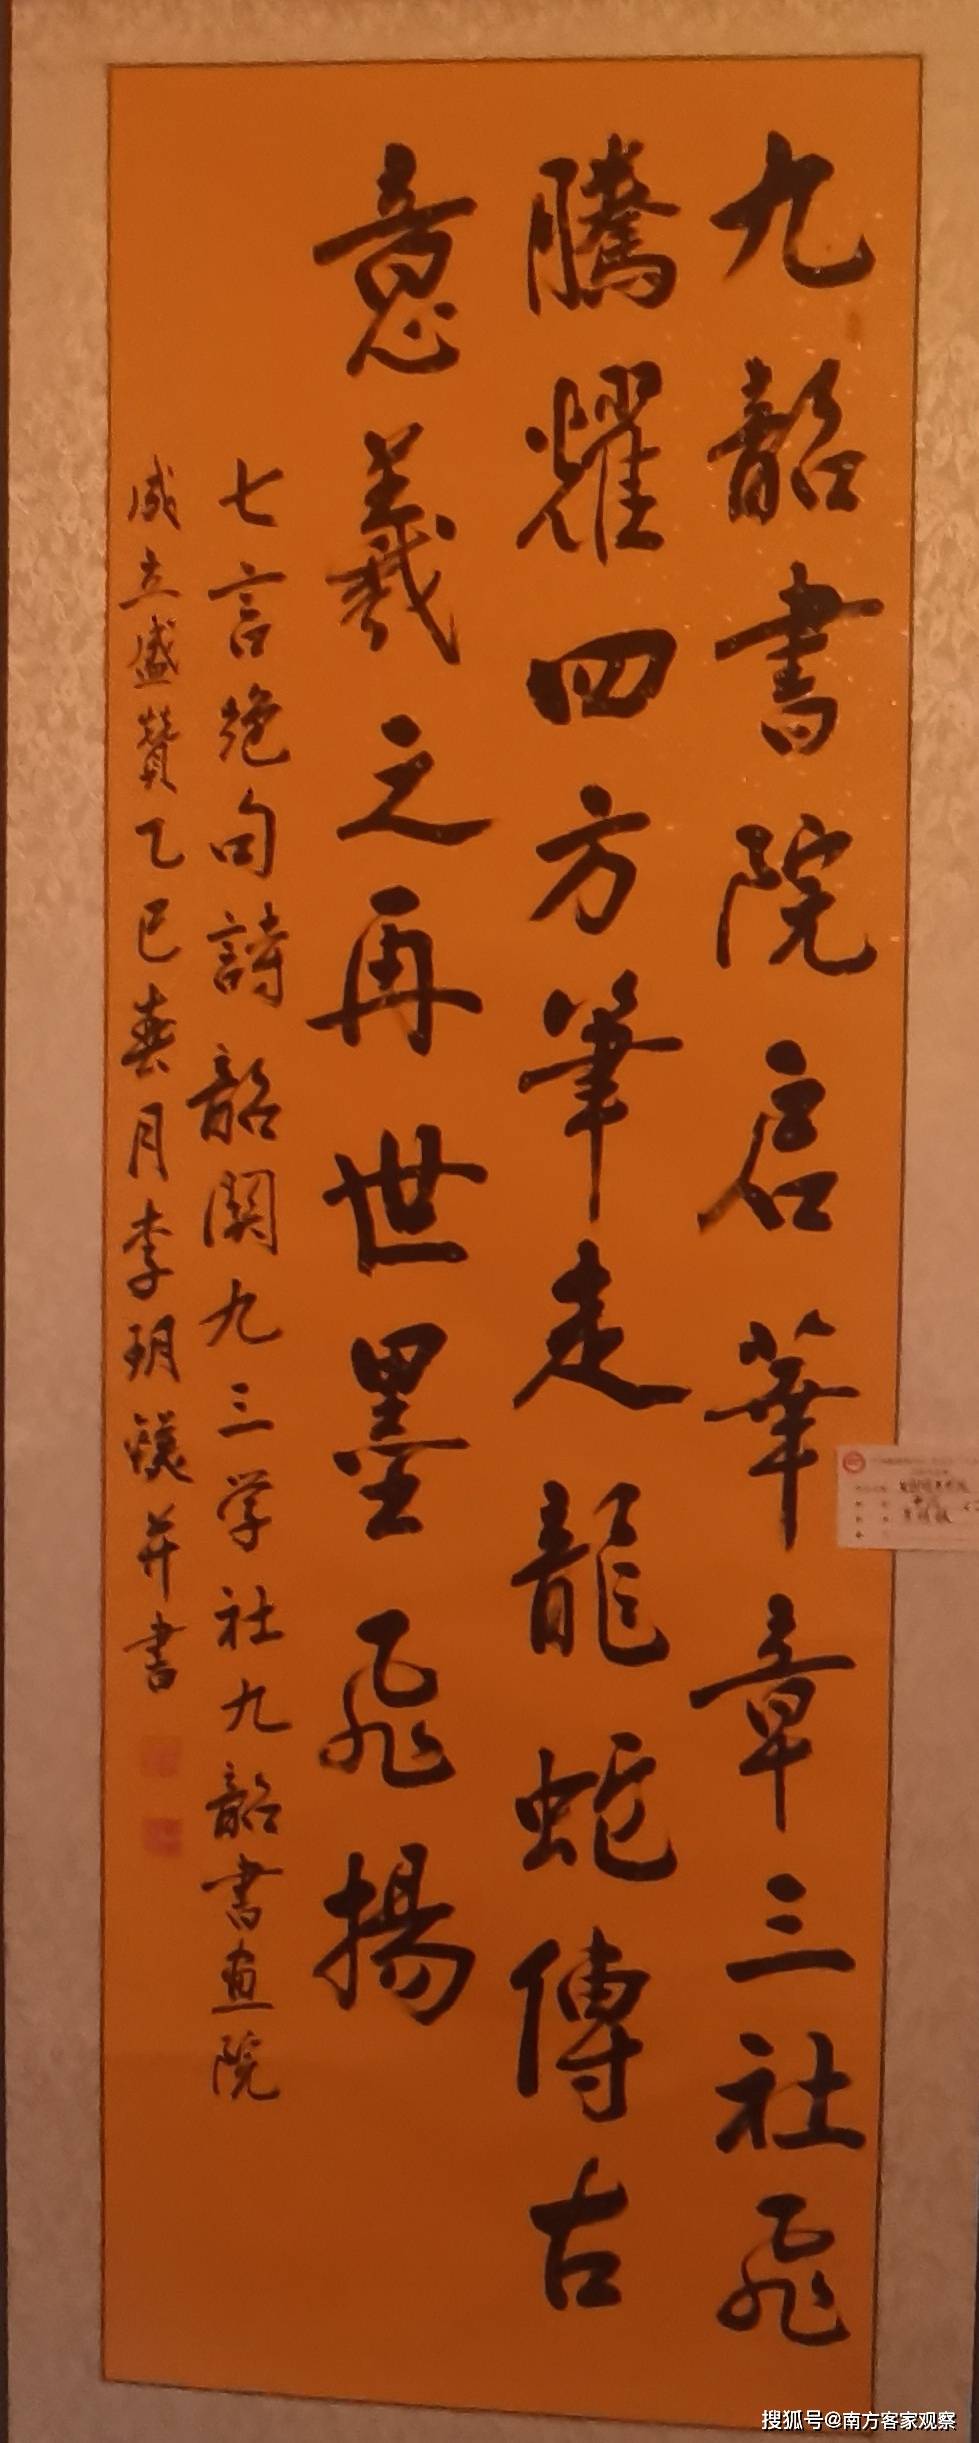 九韶書院启華章三社飛
騰耀四方筆走龍蛇傳古
意羲之再世墨飛揚
七言绝句詩韶関九三学社九韶書画院
成立盛赞乙巳春月李玥鏷并書
搜狐号@南方客家观察